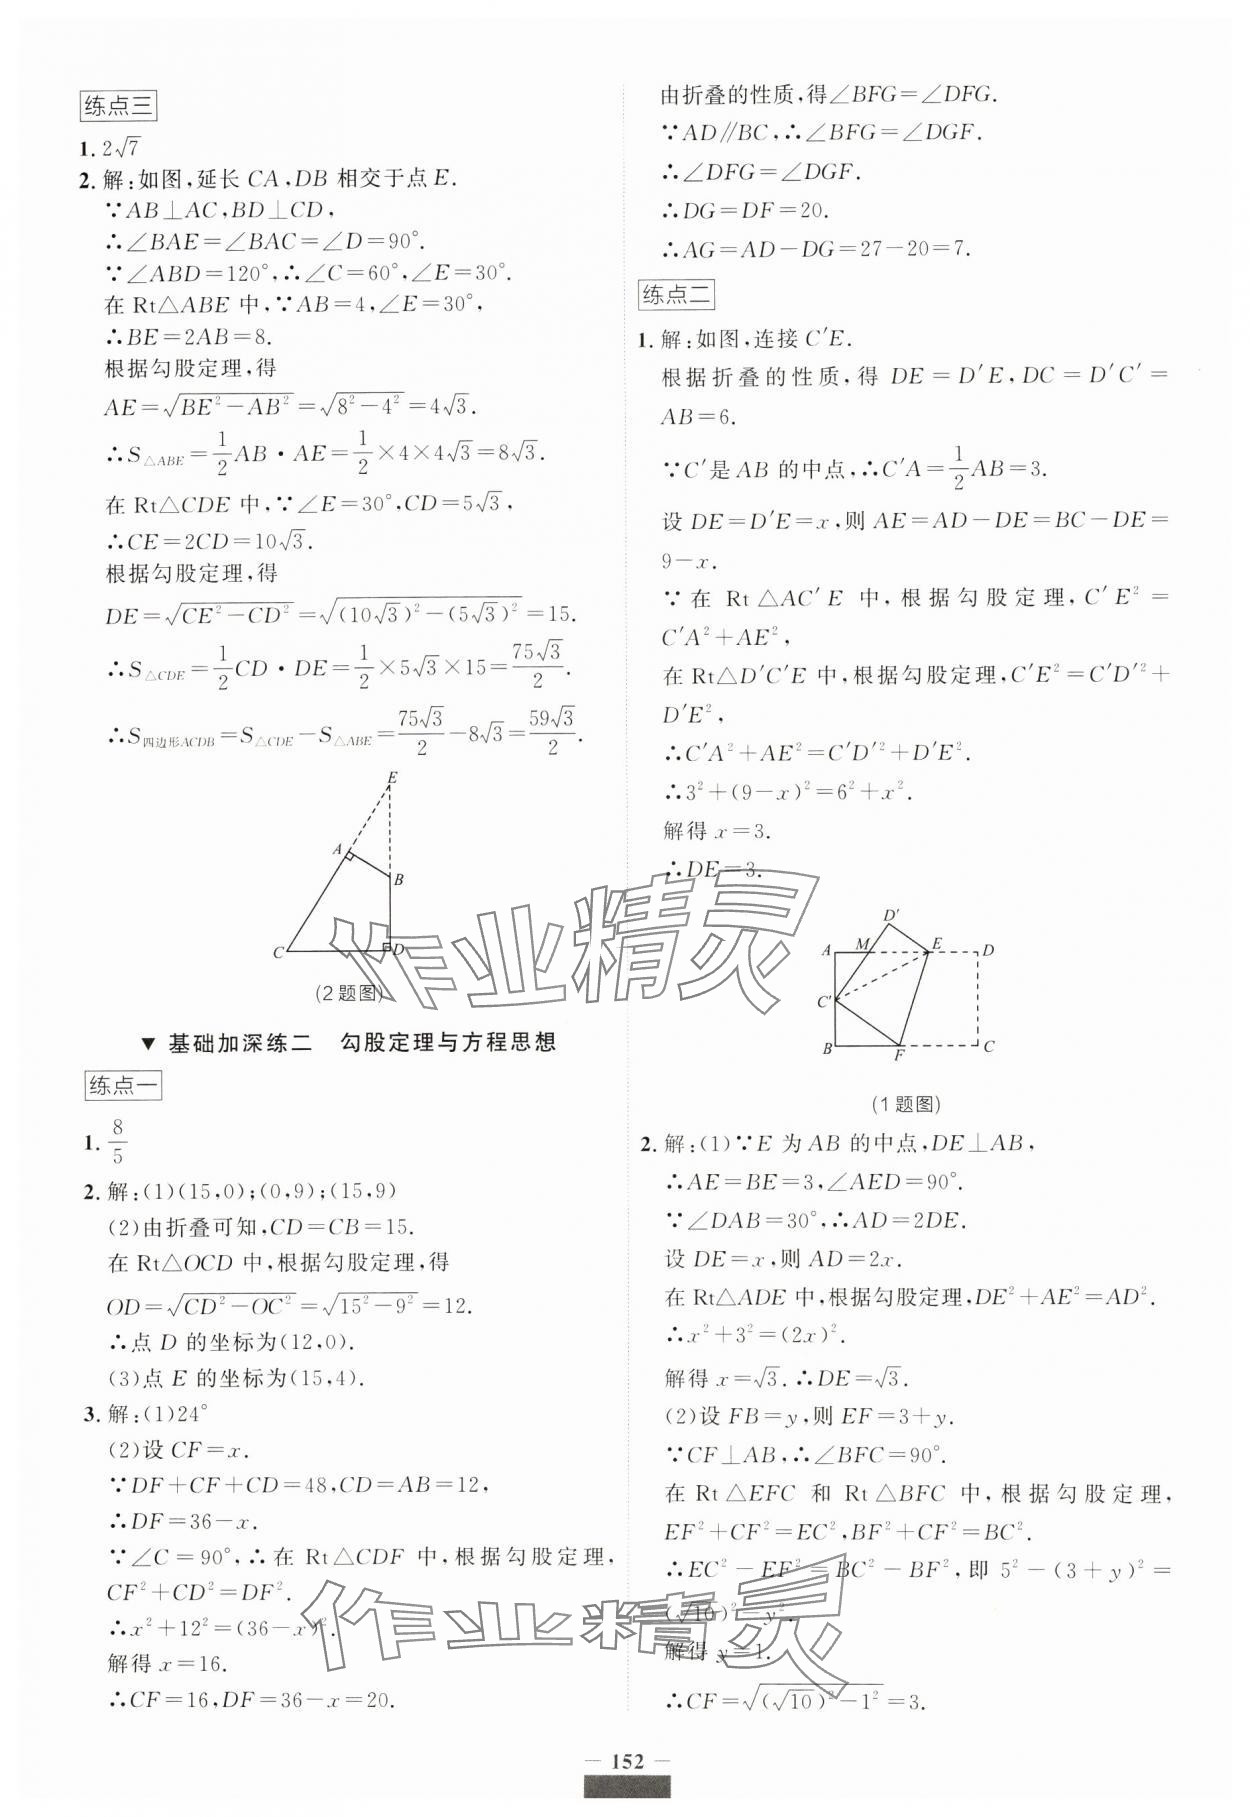 练点三
1. 2√7
2. 解:如图,延长 CA,DB 相交于点 E.
∵AB⊥AC,BD⊥CD,
∴∠BAE=∠BAC=∠D=90°.
∵∠ABD=120°,∴∠C=60°,∠E=30°.
在 Rt△ABE 中,∵AB=4,∠E=30°,
∴BE=2AB=8.
根据勾股定理,得
AE=√(BE²-AB²)=√(8²-4²)=4√3.
∴S△ABE=1/2 AB·AE=1/2×4×4√3=8√3.
在 Rt△CDE 中,∵∠E=30°,CD=5√3,
∴CE=2CD=10√3.
根据勾股定理,得
DE=√(CE²-CD²)=√((10√3)²-(5√3)²)=15.
∴S△CDE=1/2 CD·DE=1/2×5√3×15=75√3/2.
∴S四边形ACDB=S△CDE-S△ABE=75√3/2-8√3=59√3/2.
E
A
B
C
D
(2题图)
▼ 基础加深练二 勾股定理与方程思想
练点一
1. 8/5
2. 解:(1)(15,0);(0,9);(15,9)
(2)由折叠可知,CD=CB=15.
在 Rt△OCD 中,根据勾股定理,得
OD=√(CD²-OC²)=√(15²-9²)=12.
∴点 D 的坐标为(12,0).
(3)点 E 的坐标为(15,4).
3. 解:(1)24°
(2)设 CF=x.
∵DF+CF+CD=48,CD=AB=12,
∴DF=36-x.
∵∠C=90°,∴在 Rt△CDF 中,根据勾股定理,
CF²+CD²=DF².
∴x²+12²=(36-x)².
解得 x=16.
∴CF=16,DF=36-x=20.
由折叠的性质,得∠BFG=∠DFG.
∵AD∥BC,∴∠BFG=∠DGF.
∴∠DFG=∠DGF.
∴DG=DF=20.
∴AG=AD-DG=27-20=7.
练点二
1. 解:如图,连接 C′E.
根据折叠的性质,得 DE=D′E,DC=D′C′=
AB=6.
∵C′是 AB 的中点,∴C′A=1/2 AB=3.
设 DE=D′E=x,则 AE=AD-DE=BC-DE=
9-x.
∵在 Rt△AC′E 中,根据勾股定理,C′E²=
C′A²+AE²,
在 Rt△D′C′E 中,根据勾股定理,C′E²=C′D′²+
D′E²,
∴C′A²+AE²=C′D′²+D′E².
∴3²+(9-x)²=6²+x².
解得 x=3.
∴DE=3.
D′
A M E D
C′
B F C
(1题图)
2. 解:(1)∵E 为 AB 的中点,DE⊥AB,
∴AE=BE=3,∠AED=90°.
∵∠DAB=30°,∴AD=2DE.
设 DE=x,则 AD=2x.
在 Rt△ADE 中,根据勾股定理,DE²+AE²=AD².
∴x²+3²=(2x)².
解得 x=√3.∴DE=√3.
(2)设 FB=y,则 EF=3+y.
∵CF⊥AB,∴∠BFC=90°.
在 Rt△EFC 和 Rt△BFC 中,根据勾股定理,
EF²+CF²=EC²,BF²+CF²=BC².
∴EC²-EF²=BC²-BF²,即 5²-(3+y)²=
(√10)²-y².
解得 y=1.
∴CF=√((√10)²-1²)=3.
作业精灵
作业精灵
— 152 —